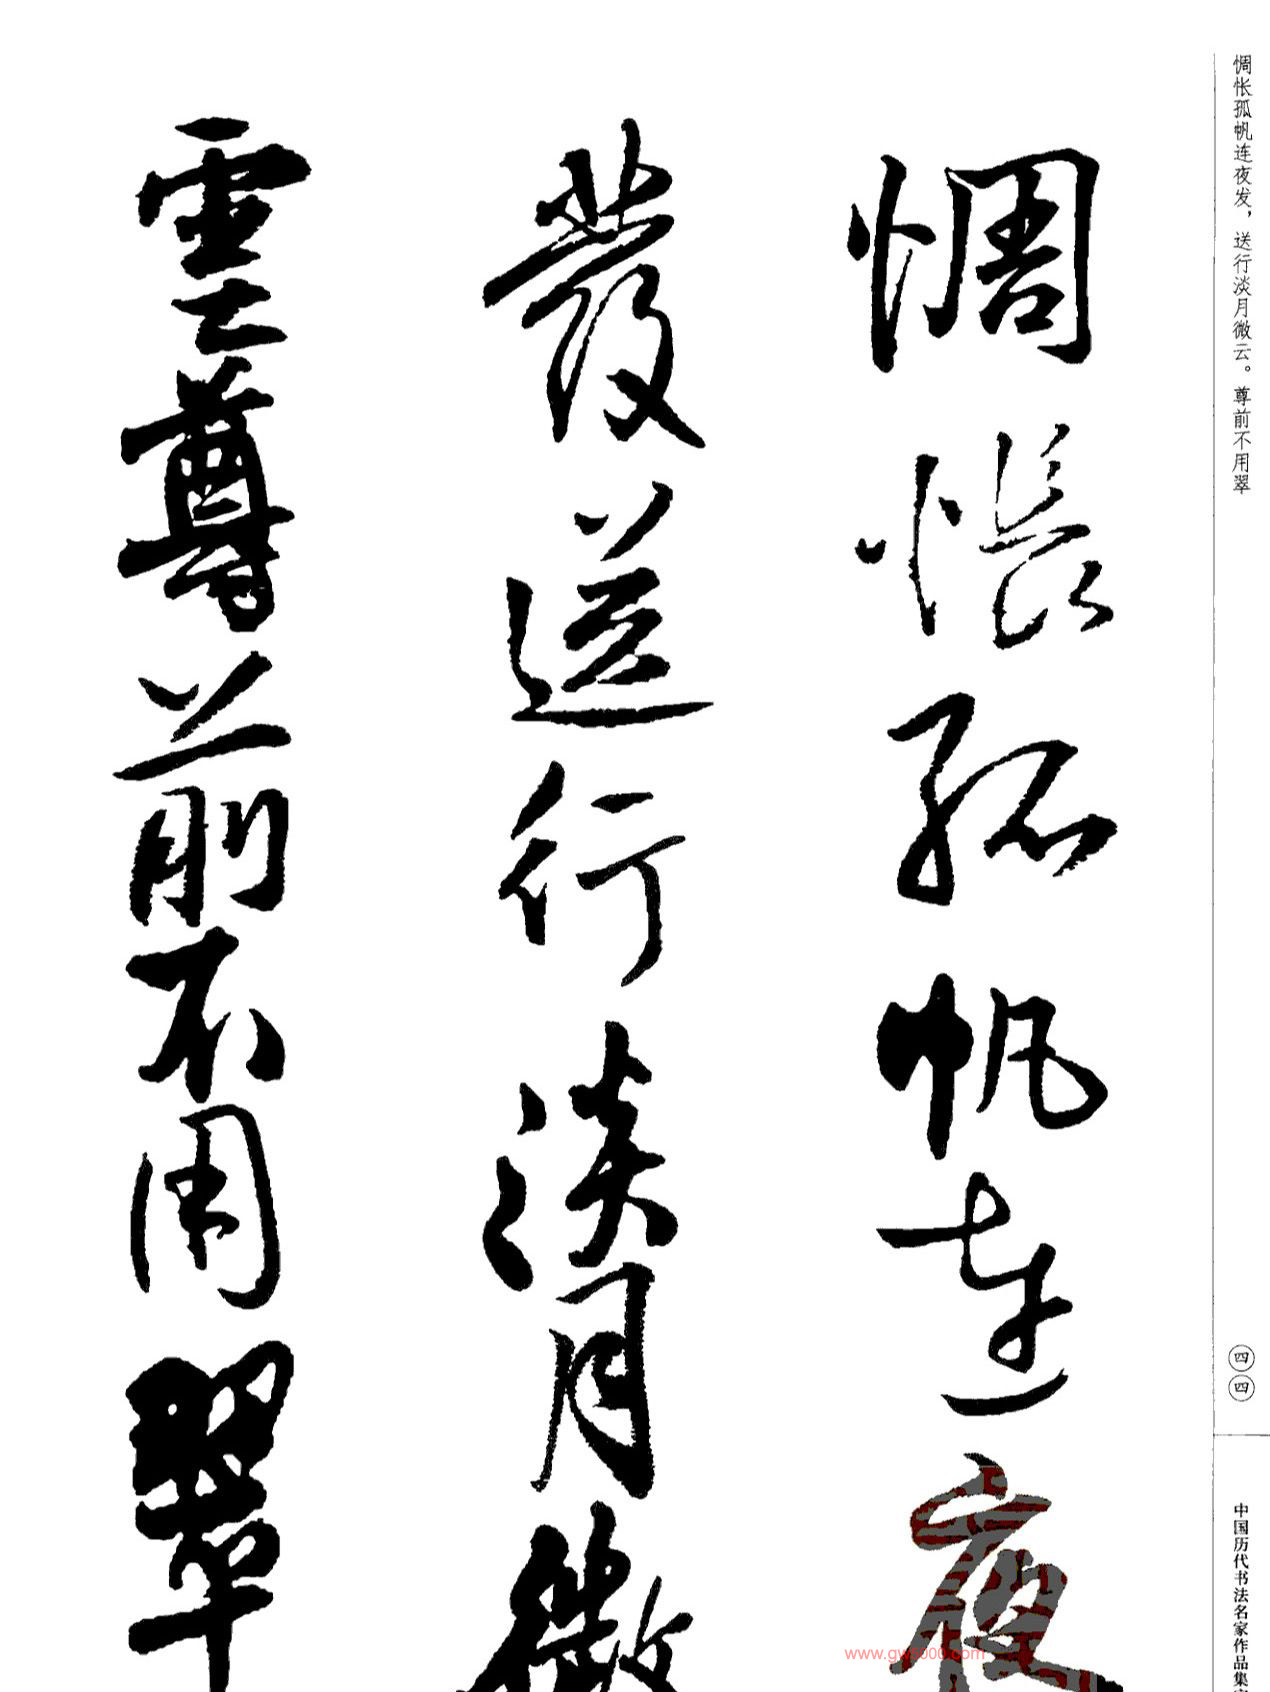 惆悵孤帆連夜
發送行淡月微
雲尊前不用翠
惆怅孤帆连夜发，送行淡月微云。尊前不用翠
四四
中国历代书法名家作品集字
www.gw5000.com